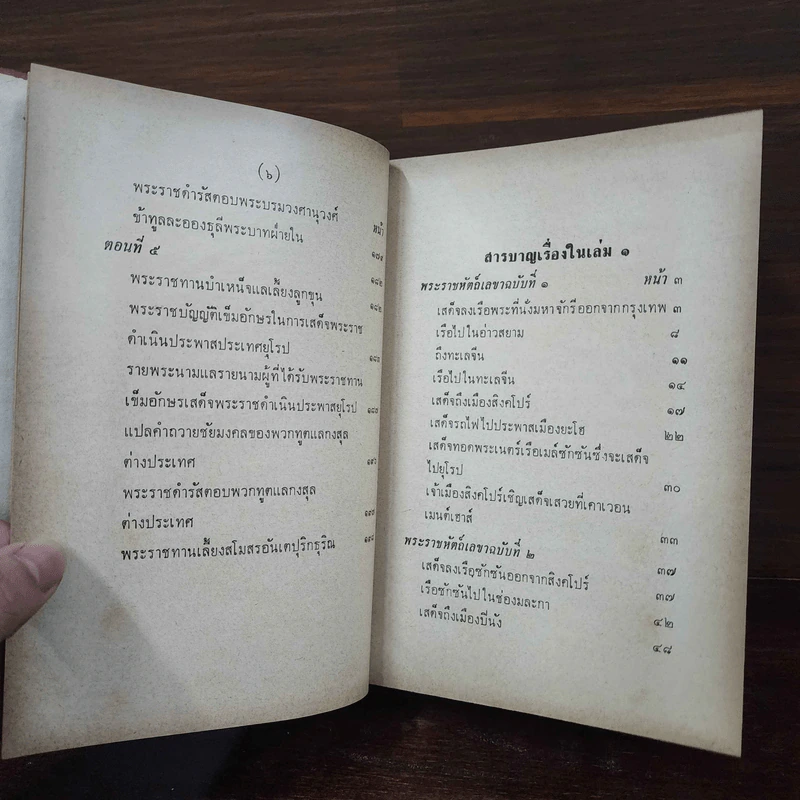 (๖)
พระราชดำรัสตอบพระบรมวงศานุวงศ์
ข้าทูลละอองธุลีพระบาทฝ่ายใน
หน้า ๑๗๔
ตอนที่ ๕
๑๘๒
พระราชทานบำเหน็จแลเลี้ยงลูกขุน ๑๘๒
พระราชบัญญัติเข็มอักษรในการเสด็จพระราช
ดำเนินประพาสประเทศยุโรป
รายพระนามแลรายนามผู้ที่ได้รับพระราชทาน
เข็มอักษรเสด็จพระราชดำเนินประพาสยุโรป ๑๘๗
แปลคำถวายชัยมงคลของพวกทูตแลกงสุล
ต่างประเทศ ๑๙๖
พระราชดำรัสตอบพวกทูตแลกงสุล
ต่างประเทศ ๑๙๗
พระราชทานเลี้ยงสโมสรอันเตปุริกธุริณ ๑๙๘
สารบาญเรื่องในเล่ม ๑
พระราชหัตถ์เลขาฉบับที่ ๑ หน้า ๓
เสด็จลงเรือพระที่นั่งมหาจักรีออกจากกรุงเทพ ๓
เรือไปในอ่าวสยาม ๘
ถึงทะเลจีน ๑๑
เรือไปในทะเลจีน ๑๔
เสด็จถึงเมืองสิงคโปร์ ๑๗
เสด็จรถไฟไปประพาสเมืองยะโฮ ๒๒
เสด็จทอดพระเนตร์เรือเมล์ซักซันซึ่งจะเสด็จ
ไปยุโรป ๓๐
เจ้าเมืองสิงคโปร์เชิญเสด็จเสวยที่เคาเวอน
เมนต์เฮาส์ ๓๓
พระราชหัตถ์เลขาฉบับที่ ๒ ๓๗
เสด็จลงเรือซักซันออกจากสิงคโปร์ ๓๗
เรือซักซันไปในช่องมละกา ๔๒
เสด็จถึงเมืองปีนัง ๔๘